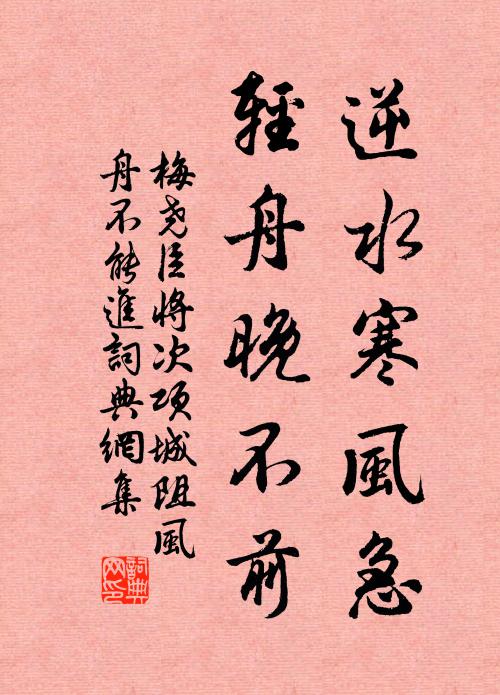 逆水寒風急
輕舟晚不前
梅堯臣將次項城阻風
舟不能進詞典網集
詞典
网印